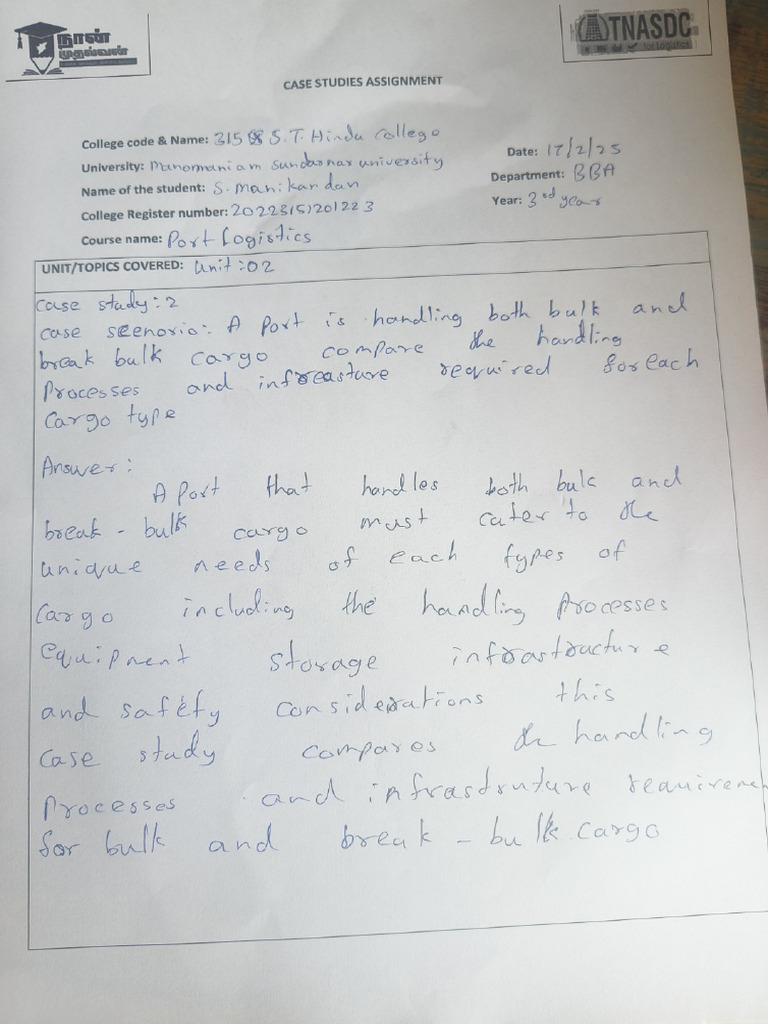 நான்
முதல்வன்
TNASDC
for Logistics
CASE STUDIES ASSIGNMENT
College code & Name: 315 S.T. Hindu College
University: Manomaniam Sundarnar university
Name of the student: S. Manikandan
College Register number: 20223151201223
Course name: Port Logistics
Date: 17/2/25
Department: BBA
Year: 3rd year
UNIT/TOPICS COVERED: Unit :02
Case study: 2
case scenorio: A Port is handling both bulk and
break bulk cargo compare the handling
Processes and infreasture required for each
Cargo type
Answer:
A Port that handles both bulk and
break - bulk cargo must cater to the
unique needs of each types of
Cargo including the handling Processes
equipment storage infrastructure
and safety considerations this
case study compares the handling
Processes and infrastruture requiremen
for bulk and break - bulk cargo